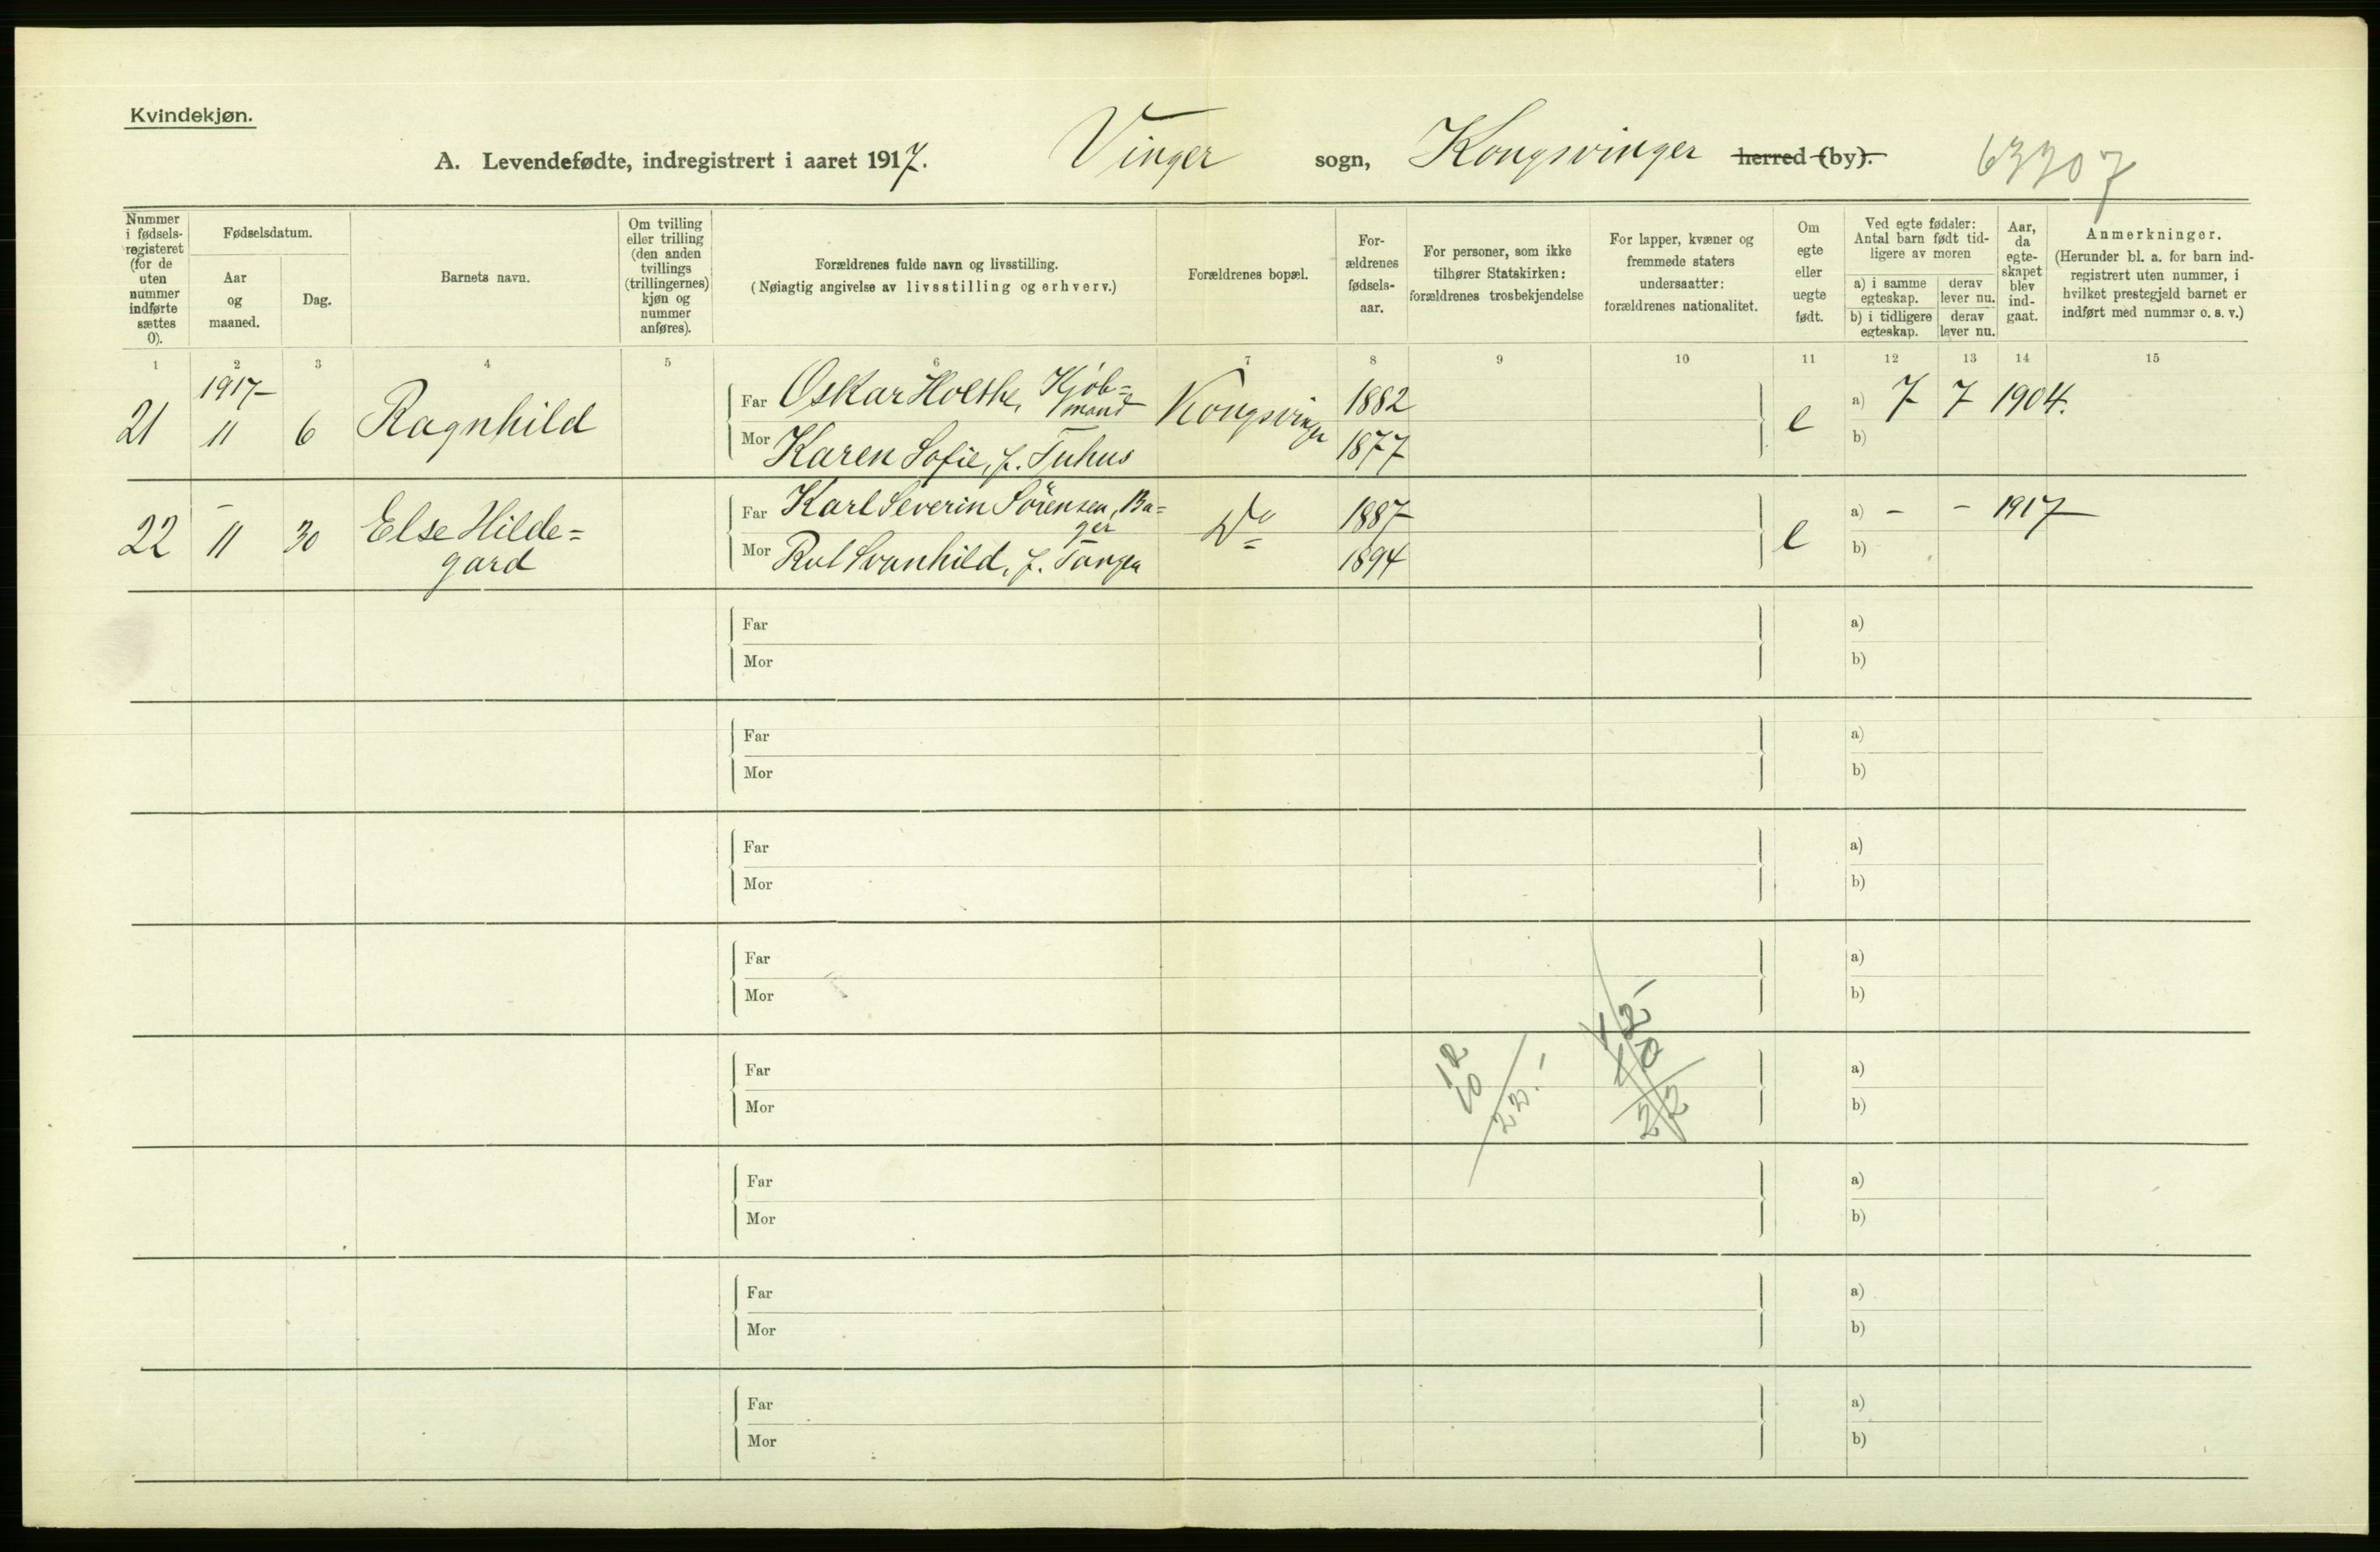 Kvindekjøn.
A. Levendefødte, indregistrert i aaret 1917. Vinger sogn, Kongsvinger herred (by).
63307
Nummer i fødsels-registeret (for de uten nummer indførte sættes 0).
Fødselsdatum.
Aar og maaned.
Dag.
Barnets navn.
Om tvilling eller trilling (den anden tvillings (trillingernes) kjøn og nummer anføres).
Forældrenes fulde navn og livsstilling.
(Nøiagtig angivelse av livsstilling og erhverv.)
Forældrenes bopæl.
For-ældrenes fødsels-aar.
For personer, som ikke tilhører Statskirken: forældrenes trosbekjendelse
For lapper, kvæner og fremmede staters undersaatter: forældrenes nationalitet.
Om egte eller uegte født.
Ved egte fødsler: Antal barn født tid-ligere av moren
a) i samme egteskap.
derav lever nu.
b) i tidligere egteskap.
derav lever nu.
Aar, da egte-skapet blev ind-gaat.
Anmerkninger.
(Herunder bl. a. for barn ind-registrert uten nummer, i hvilket prestegjeld barnet er indført med nummer o. s. v.)
1 2 3 4 5 6 7 8 9 10 11 12 13 14 15
1917
21 11 6 Ragnhild Far Oskar Holthe, Kjöb=mand Kongsvinger 1882 e a) 7 7 1904.
Mor Karen Sofie, f. Tuhus 1877 b)
22 11 30 Else Hilde= Far Karl Severin Sörensen, Ba=ger Do 1887 e a) - - 1917
gard Mor Svanhild, f. Tangen 1894 b)
Far a)
Mor b)
Far a)
Mor b)
Far a)
Mor b)
Far a)
Mor b)
12
10
22.-
12-
10
22
Far a)
Mor b)
Far a)
Mor b)
Far a)
Mor b)
Far a)
Mor b)